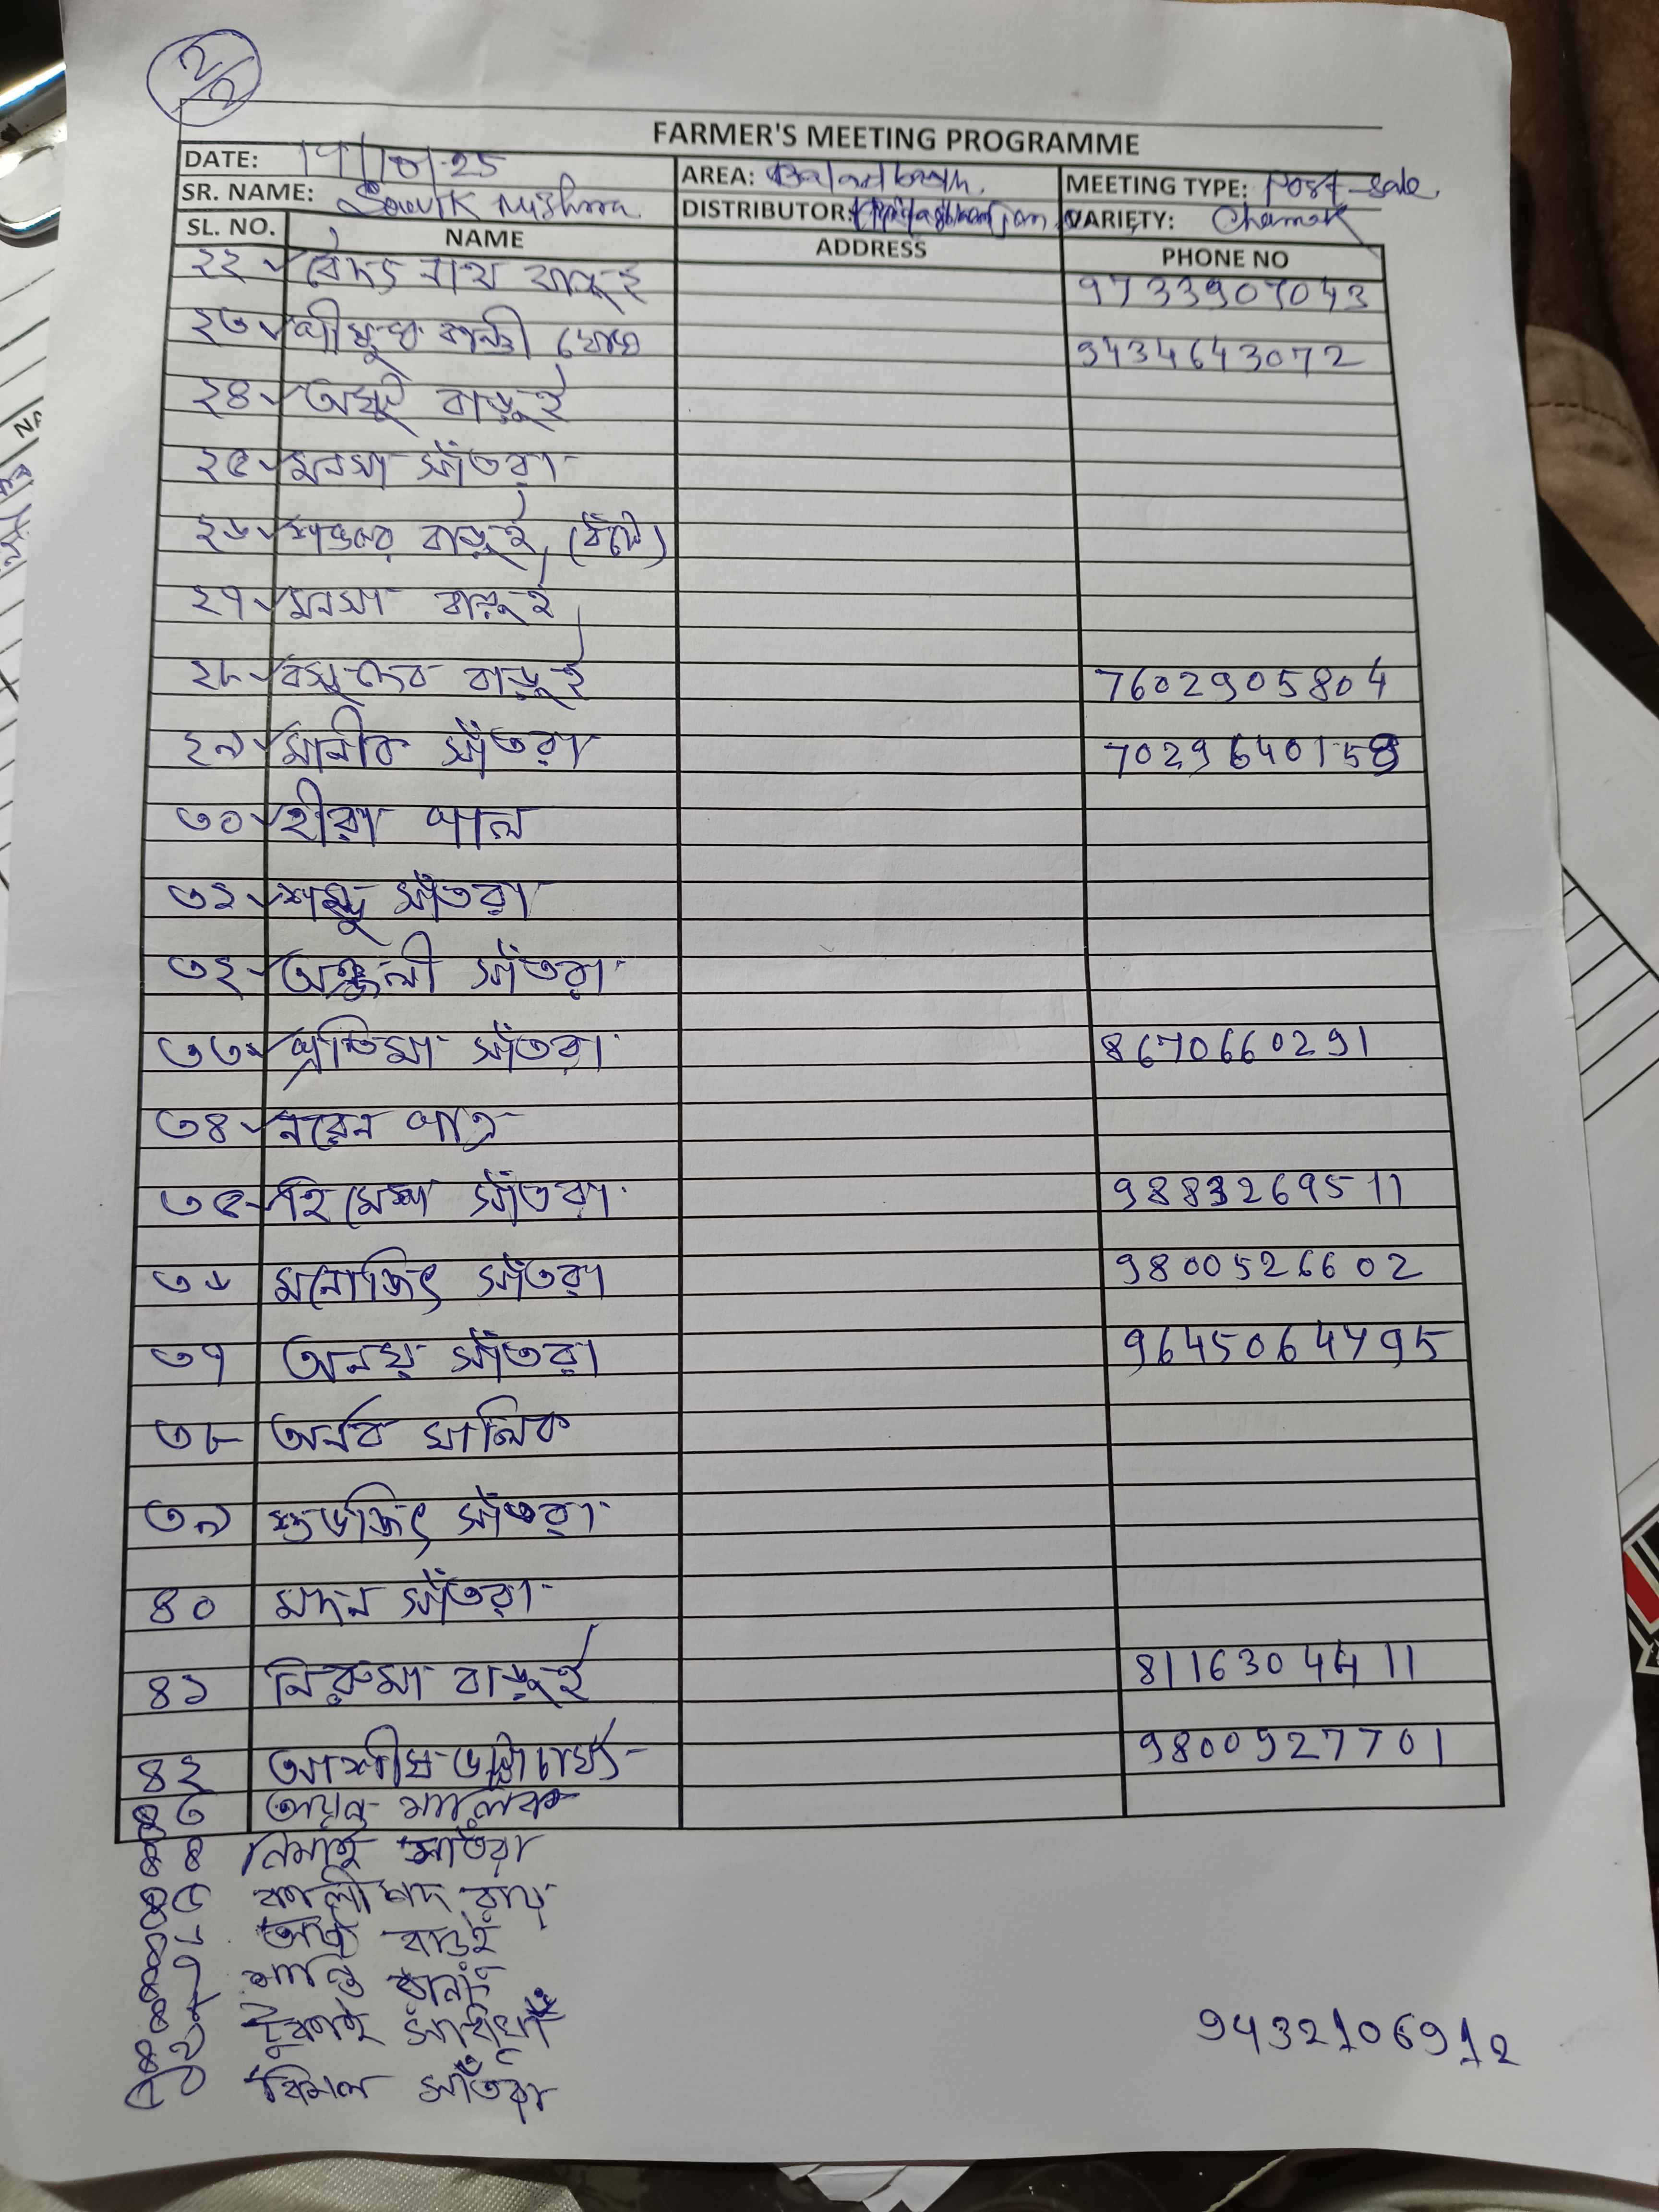 2/2
FARMER'S MEETING PROGRAMME
DATE: 17/10/25 AREA: MEETING TYPE: Post-sale
SR. NAME: Souvik Mishra DISTRIBUTOR: VARIETY: Chamak
SL. NO. NAME ADDRESS PHONE NO
২২ নাথ বাড়ুই 9733907043
২৩ পীযুষ কান্তী ঘোষ 9434643072
২৪ বাড়ুই
২৫ মনসা সাঁতরা
২৬ শঙ্কর বাড়ুই
২৭ মনসা বাড়ুই
২৮ বসুদেব বাড়ুই 7602905804
২৯ মানীক সাঁতরা 7029640158
৩০ হীরা পাল
৩১ শম্ভু সাঁতরা
৩২ অঞ্জলী সাঁতরা
৩৩ প্রতিমা সাঁতরা 8670660291
৩৪ নরেন পাত্র
৩৫ হিমেশ সাঁতরা 9883269511
৩৬ মনোজিৎ সাঁতরা 9800526602
৩৭ অনয় সাঁতরা 9645064795
৩৮ মালিক
৩৯ শুভজিৎ সাঁতরা
৪০ মদন সাঁতরা
৪১ নিরুমা বাড়ুই 8116304411
৪২ আশীষ ভট্টাচার্য্য 9800927701
৪৩ মালিক
৪৪ নিমাই সাঁতরা
৪৫ কালীপদ রায়
বাড়ুই
শান্তি
9432106912
বিমল সাঁতরা